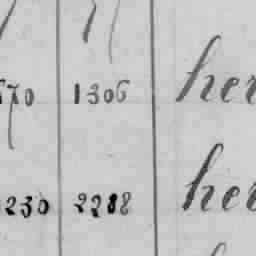 670 1306 her
230 2288 her